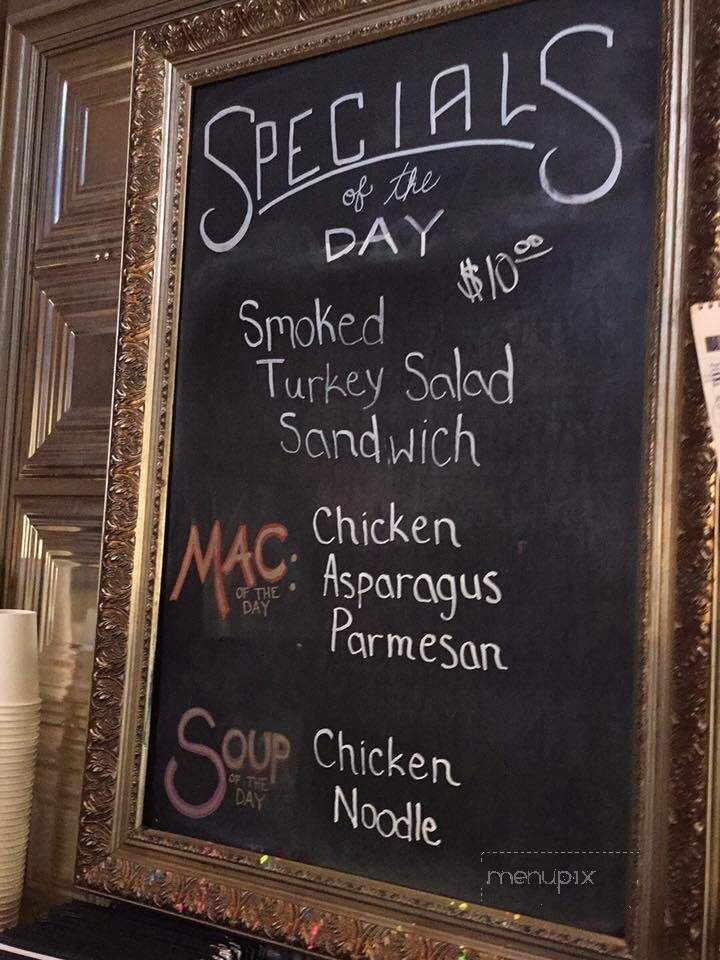 SPECIALS
of the
DAY
$10.00
Smoked
Turkey Salad
Sandwich
MAC:
OF THE
DAY
Chicken
Asparagus
Parmesan
SOUP
OF THE
DAY
Chicken
Noodle
menupix